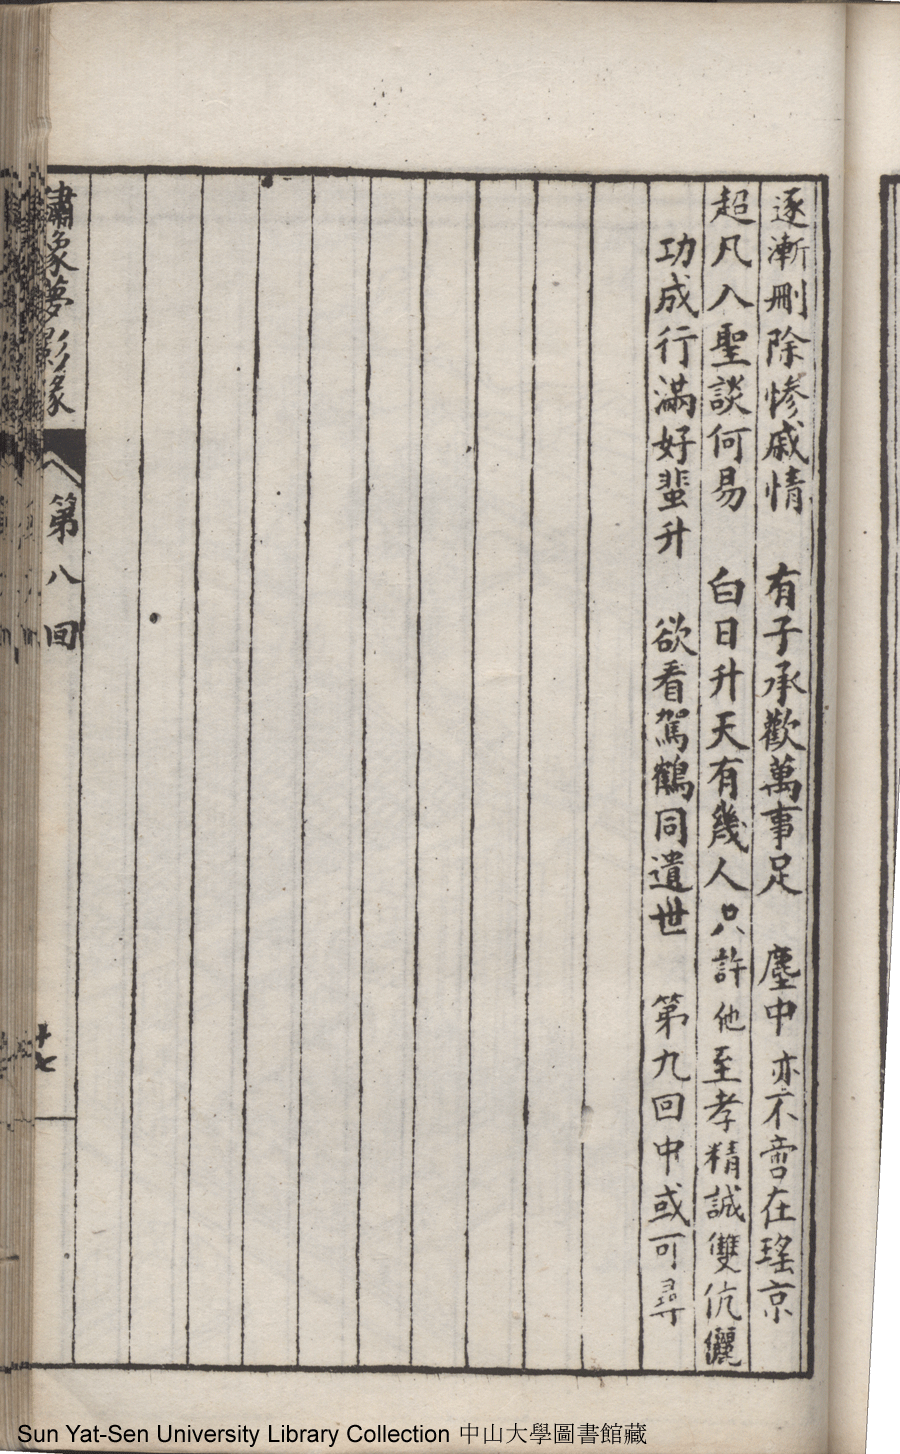 逐漸刪除慘戚情　有子承歡萬事足　塵中亦不啻在瑤京
超凡入聖談何易　白日升天有幾人只許他至孝精誠雙伉儷
功成行滿好蜚升　欲看駕鶴同遺世　第九回中或可尋
繡象夢影緣　第八回　十七
Sun Yat-Sen University Library Collection 中山大學圖書館藏